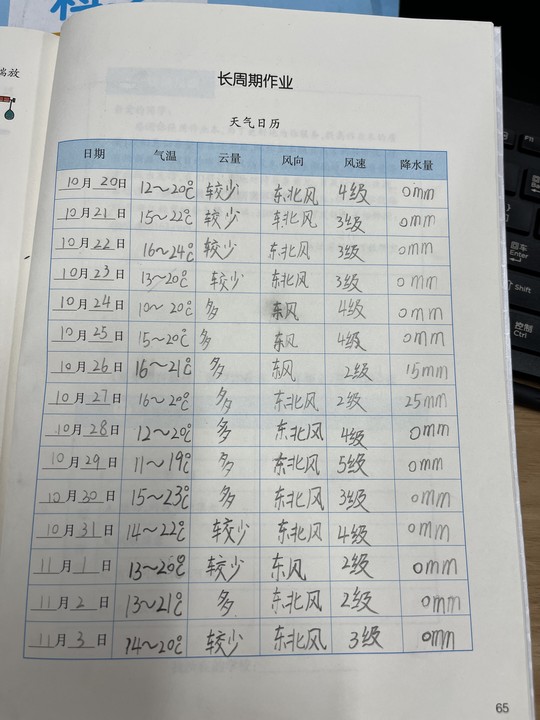 端放
长周期作业
天气日历
日期 气温 云量 风向 风速 降水量
10月20日 12~20℃ 较少 东北风 4级 0mm
10月21日 15~22℃ 较少 东北风 3级 0mm
10月22日 16~24℃ 较少 东北风 3级 0mm
10月23日 13~20℃ 较少 东北风 3级 0mm
10月24日 10~20℃ 多 东风 4级 0mm
10月25日 15~20℃ 多 东风 4级 0mm
10月26日 16~21℃ 多 东风 2级 15mm
10月27日 16~20℃ 多 东北风 2级 25mm
10月28日 12~20℃ 多 东北风 4级 0mm
10月29日 11~19℃ 多 东北风 5级 0mm
10月30日 15~23℃ 多 东北风 3级 0mm
10月31日 14~22℃ 较少 东北风 4级 0mm
11月1日 13~20℃ 较少 东风 2级 0mm
11月2日 13~21℃ 多 东北风 2级 0mm
11月3日 14~20℃ 较少 东北风 3级 0mm
65
回车
Enter
Shift
控制
Ctrl